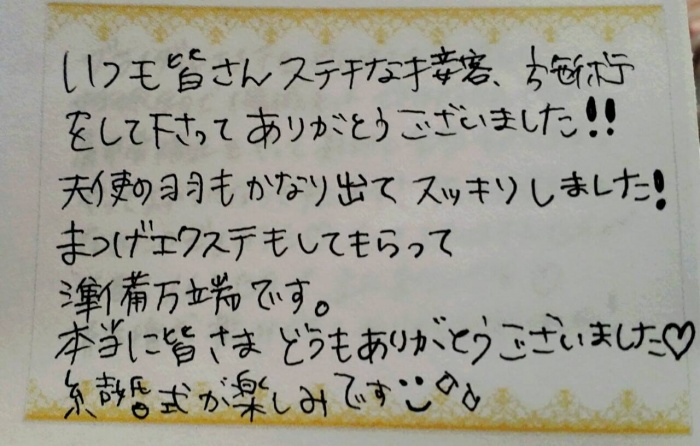 いつも皆さんステキな接客、お施術
をして下さってありがとうございました!!
天使の羽もかなり出てスッキリしました!
まつげエクステもしてもらって
準備万端です。
本当に皆さまどうもありがとうございました♡
結婚式が楽しみです